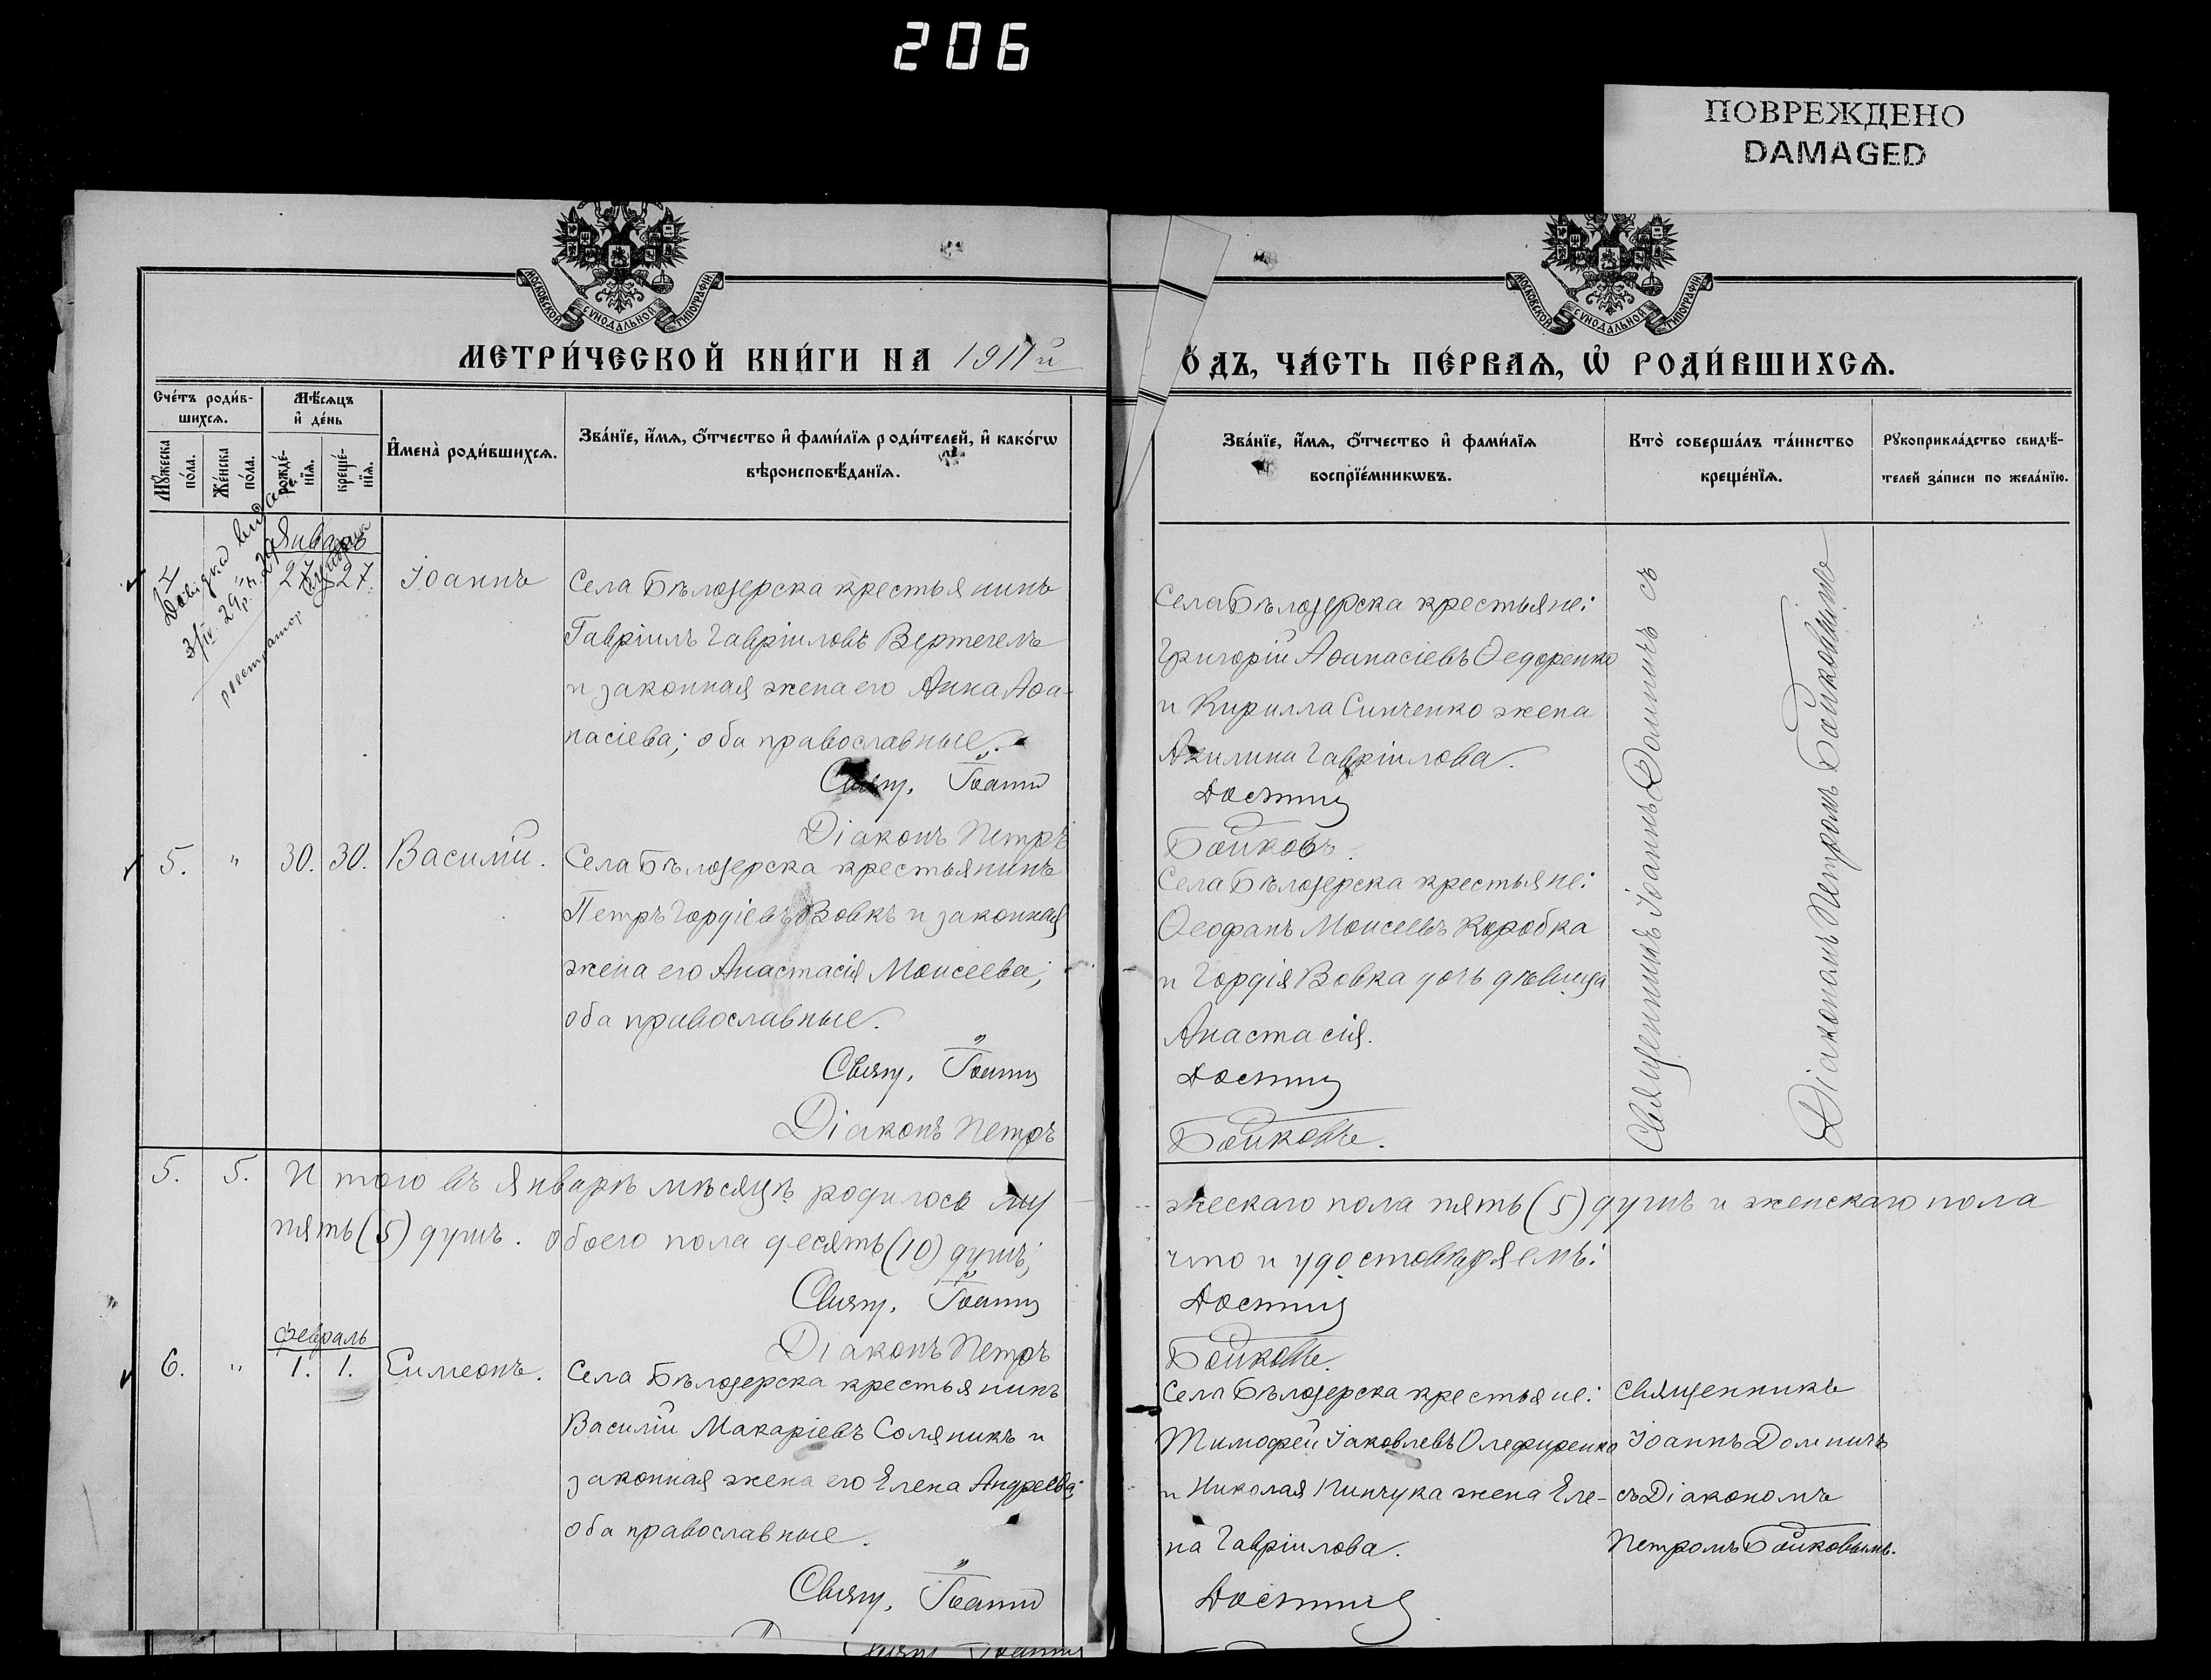 206
ПОВРЕЖДЕНО
DAMAGED
МОСКОВСКОЙ СУНОДАЛЬНОЙ ТИПОГРАФІИ
МОСКОВСКОЙ СУНОДАЛЬНОЙ ТИПОГРАФІИ
МЕТРИ́ЧЕСКОЙ КНИ́ГИ НА 1911й
О́ДЪ, ЧА́СТЬ ПЕ́РВАѦ, Ѡ҆ РОДИ́ВШИХСѦ.
Сче́тъ роди́в-
шихсѧ.
Мꙋ́жеска по́ла.
Же́нска по́ла.
Мѣ́сѧцъ
и҆ де́нь
рожде́-
нїѧ.
креще́-
нїѧ.
И҆мена̀ роди́вшихсѧ.
Зва́нїе, и҆́мѧ, ѻ҆́тчество и҆ фами́лїѧ роди́телей, и҆ како́гѡ
вѣроисповѣ́данїѧ.
Зва́нїе, и҆́мѧ, ѻ҆́тчество и҆ фами́лїѧ
воспрїе́мникѡвъ.
Кто̀ соверша́лъ та́инство
креще́нїѧ.
Рꙋкоприкла́дство свидѣ́-
телей за́писи по жела́нїю.
Январь
27 27. Іоаннъ
Села Бѣлозерска крестьянинъ
Гавріилъ Гавріиловъ Вертегелъ
и законная жена его Анна Аѳа-
насіева; оба православные.
Свящ. Іоаннъ
Діаконъ Петръ
Села Бѣлозерска крестьяне:
Григорій Аѳанасіевъ Ѳедоренко
и Кирилла Синченко жена
Акилина Гавріилова.
Бойковъ.
Священникъ Іоаннъ съ
Діакономъ Петромъ Бойковымъ
5. " 30. 30. Василій.
Села Бѣлозерска крестьянинъ
Петръ Гордіевъ Вовкъ и законная
жена его Анастасія Моисеева;
оба православные.
Свящ. Іоаннъ
Діаконъ Петръ
Села Бѣлозерска крестьяне:
Ѳеофанъ Моисеевъ Коробка
и Гордія Вовка дочь дѣвица
Анастасія.
Бойковъ.
5. 5. И того въ Январѣ мѣсяцѣ родилось му
жескаго пола пять (5) душъ и женскаго пола
пять (5) душъ. обоего пола десять (10) душъ;
что и удостовѣряемъ:
Свящ. Іоаннъ
Діаконъ Петръ
Бойковъ.
февраль
6. " 1. 1. Симеонъ.
Села Бѣлозерска крестьянинъ
Василій Макаріевъ Соляникъ и
законная жена его Елена Андреева;
оба православные.
Свящ. Іоаннъ
Села Бѣлозерска крестьяне:
Тимофей Іаковлевъ Олефиренко
и Николая Пинчука жена Еле-
на Гавріилова.
Священникъ
Іоаннъ
съ Діакономъ
Петромъ Бойковымъ.